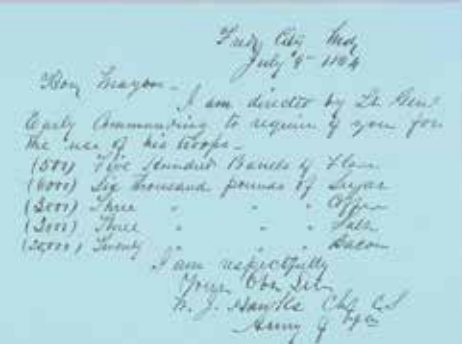 Fredk City Md
July 9th 1864
Hon Mayor -
I am directed by Lt Genl
Early Commanding to require of you for
the use of his troops -
(500) Five Hundred Barrels of Flour
(6000) Six thousand pounds of Sugar
(3000) Three " " " Coffee
(3000) Three " " " Salt
(20,000) Twenty " " " Bacon
I am respectfully
Your Obt Sevt
W. J. Hawks Chf C.S.
Army of